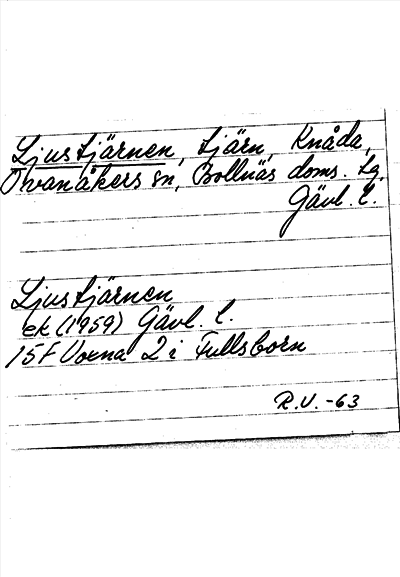 Ljustjärnen, tjärn, Knåda,
Ovanåkers sn, Bollnäs doms. tg.
Gävl. l.
Ljustjärnen
ek (1959) Gävl. l.
15F Voxna 2 i Fullsborn
R.V. -63